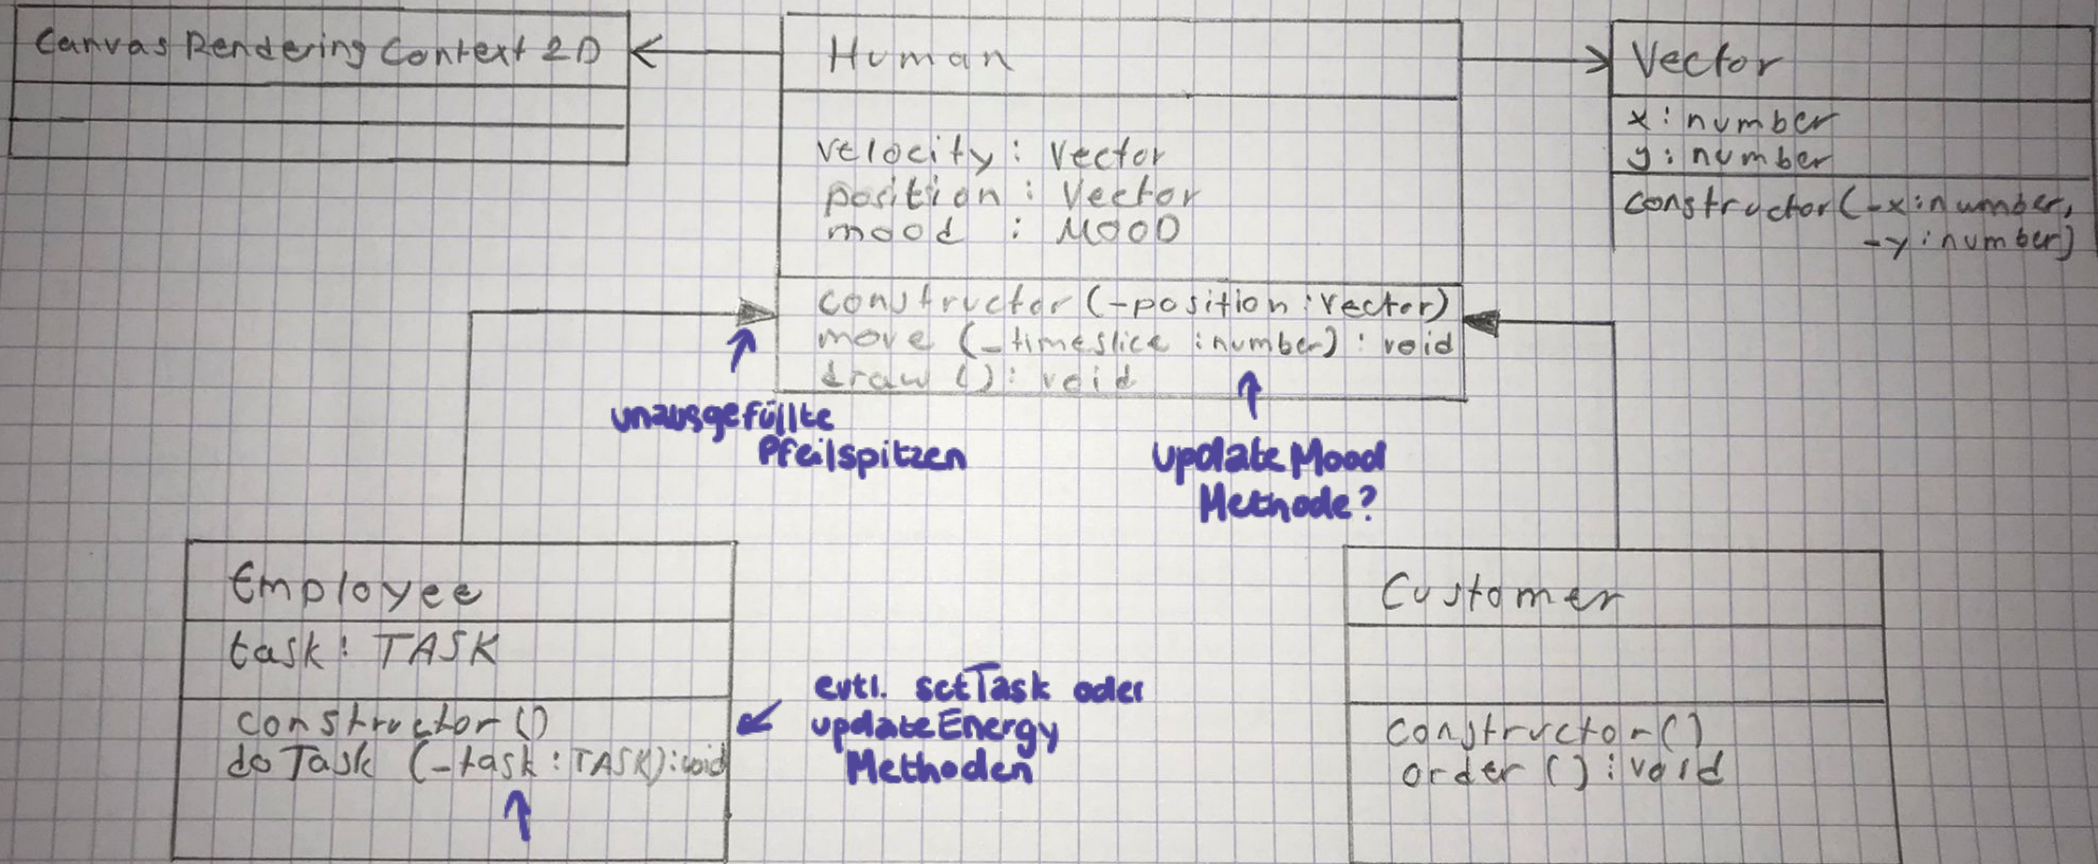 Canvas Rendering Context 2D
Human
velocity : Vector
position : Vector
mood : MOOD
constructor (_position : Vector)
move (_timeslice : number) : void
draw () : void
Vector
x : number
y : number
constructor (_x : number,
_y : number)
unausgefüllte
Pfeilspitzen
updateMood
Methode?
Employee
task : TASK
constructor ()
doTask (_task : TASK) : void
evtl. setTask oder
updateEnergy
Methoden
Customer
constructor ()
order () : void